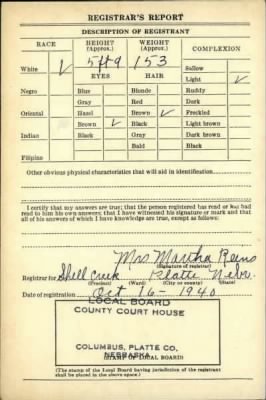 REGISTRAR'S REPORT
DESCRIPTION OF REGISTRANT
RACE HEIGHT (Approx.) WEIGHT (Approx.) COMPLEXION
White ✓ 5ft 9 153 Sallow
EYES HAIR Light ✓
Negro Blue Blonde Ruddy
Gray Red Dark
Oriental Hazel Brown ✓ Freckled
Brown ✓ Black Light brown
Indian Black Gray Dark brown
Bald Black
Filipino
Other obvious physical characteristics that will aid in identification
I certify that my answers are true; that the person registered has read or has had
read to him his own answers; that I have witnessed his signature or mark and that
all of his answers of which I have knowledge are true, except as follows:
Mrs Martha Reins
(Signature of registrar)
Registrar for Shell Creek Platte Nebr.
(Precinct) (Ward) (City or county) (State)
Date of registration Oct 16 - 1940
LOCAL BOARD
COUNTY COURT HOUSE
COLUMBUS, PLATTE CO.
NEBRASKA
(STAMP OF LOCAL BOARD)
(The stamp of the Local Board having jurisdiction of the registrant
shall be placed in the above space.)